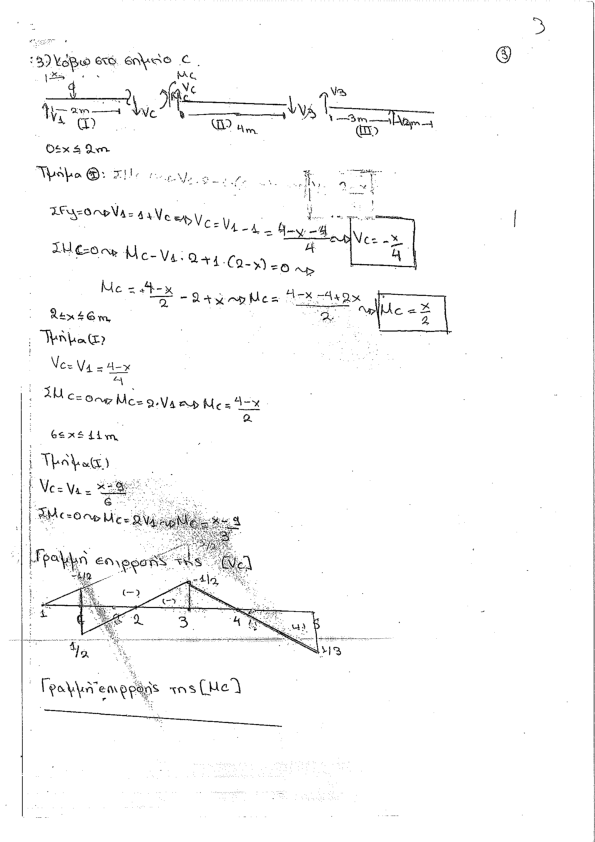 3
3
3) Κόβω στο σημείο C.
x
Mc
Vc
V3
q
Mc
2m
V1
(I)
Vc
(II)
4m
V3
3m
(III)
2m
0≤x≤2m
Τμήμα (I):
ΣFy=0 ⇝ V1=1+Vc ⇝ Vc=V1-1 = 4-x-4/4 ⇝ Vc=-x/4
ΣMc=0 ⇝ Mc-V1·2+1·(2-x)=0 ⇝
Mc=+4-x/2 -2+x ⇝ Mc= 4-x-4+2x/2 ⇝ Mc=x/2
2≤x≤6m
Τμήμα(I)
Vc=V1=4-x/4
ΣMc=0 ⇝ Mc=2·V1 ⇝ Mc=4-x/2
6≤x≤11m
Τμήμα(I)
Vc=V1=x-9/6
ΣMc=0 ⇝ Mc=2V1 ⇝ Mc=x-9/3
Γραμμή επιρροής της [Vc]
-1/2
-1/2
(-)
(-)
1
C
2
3
4
(+)
5
1/2
1/3
Γραμμή επιρροής της [Mc]